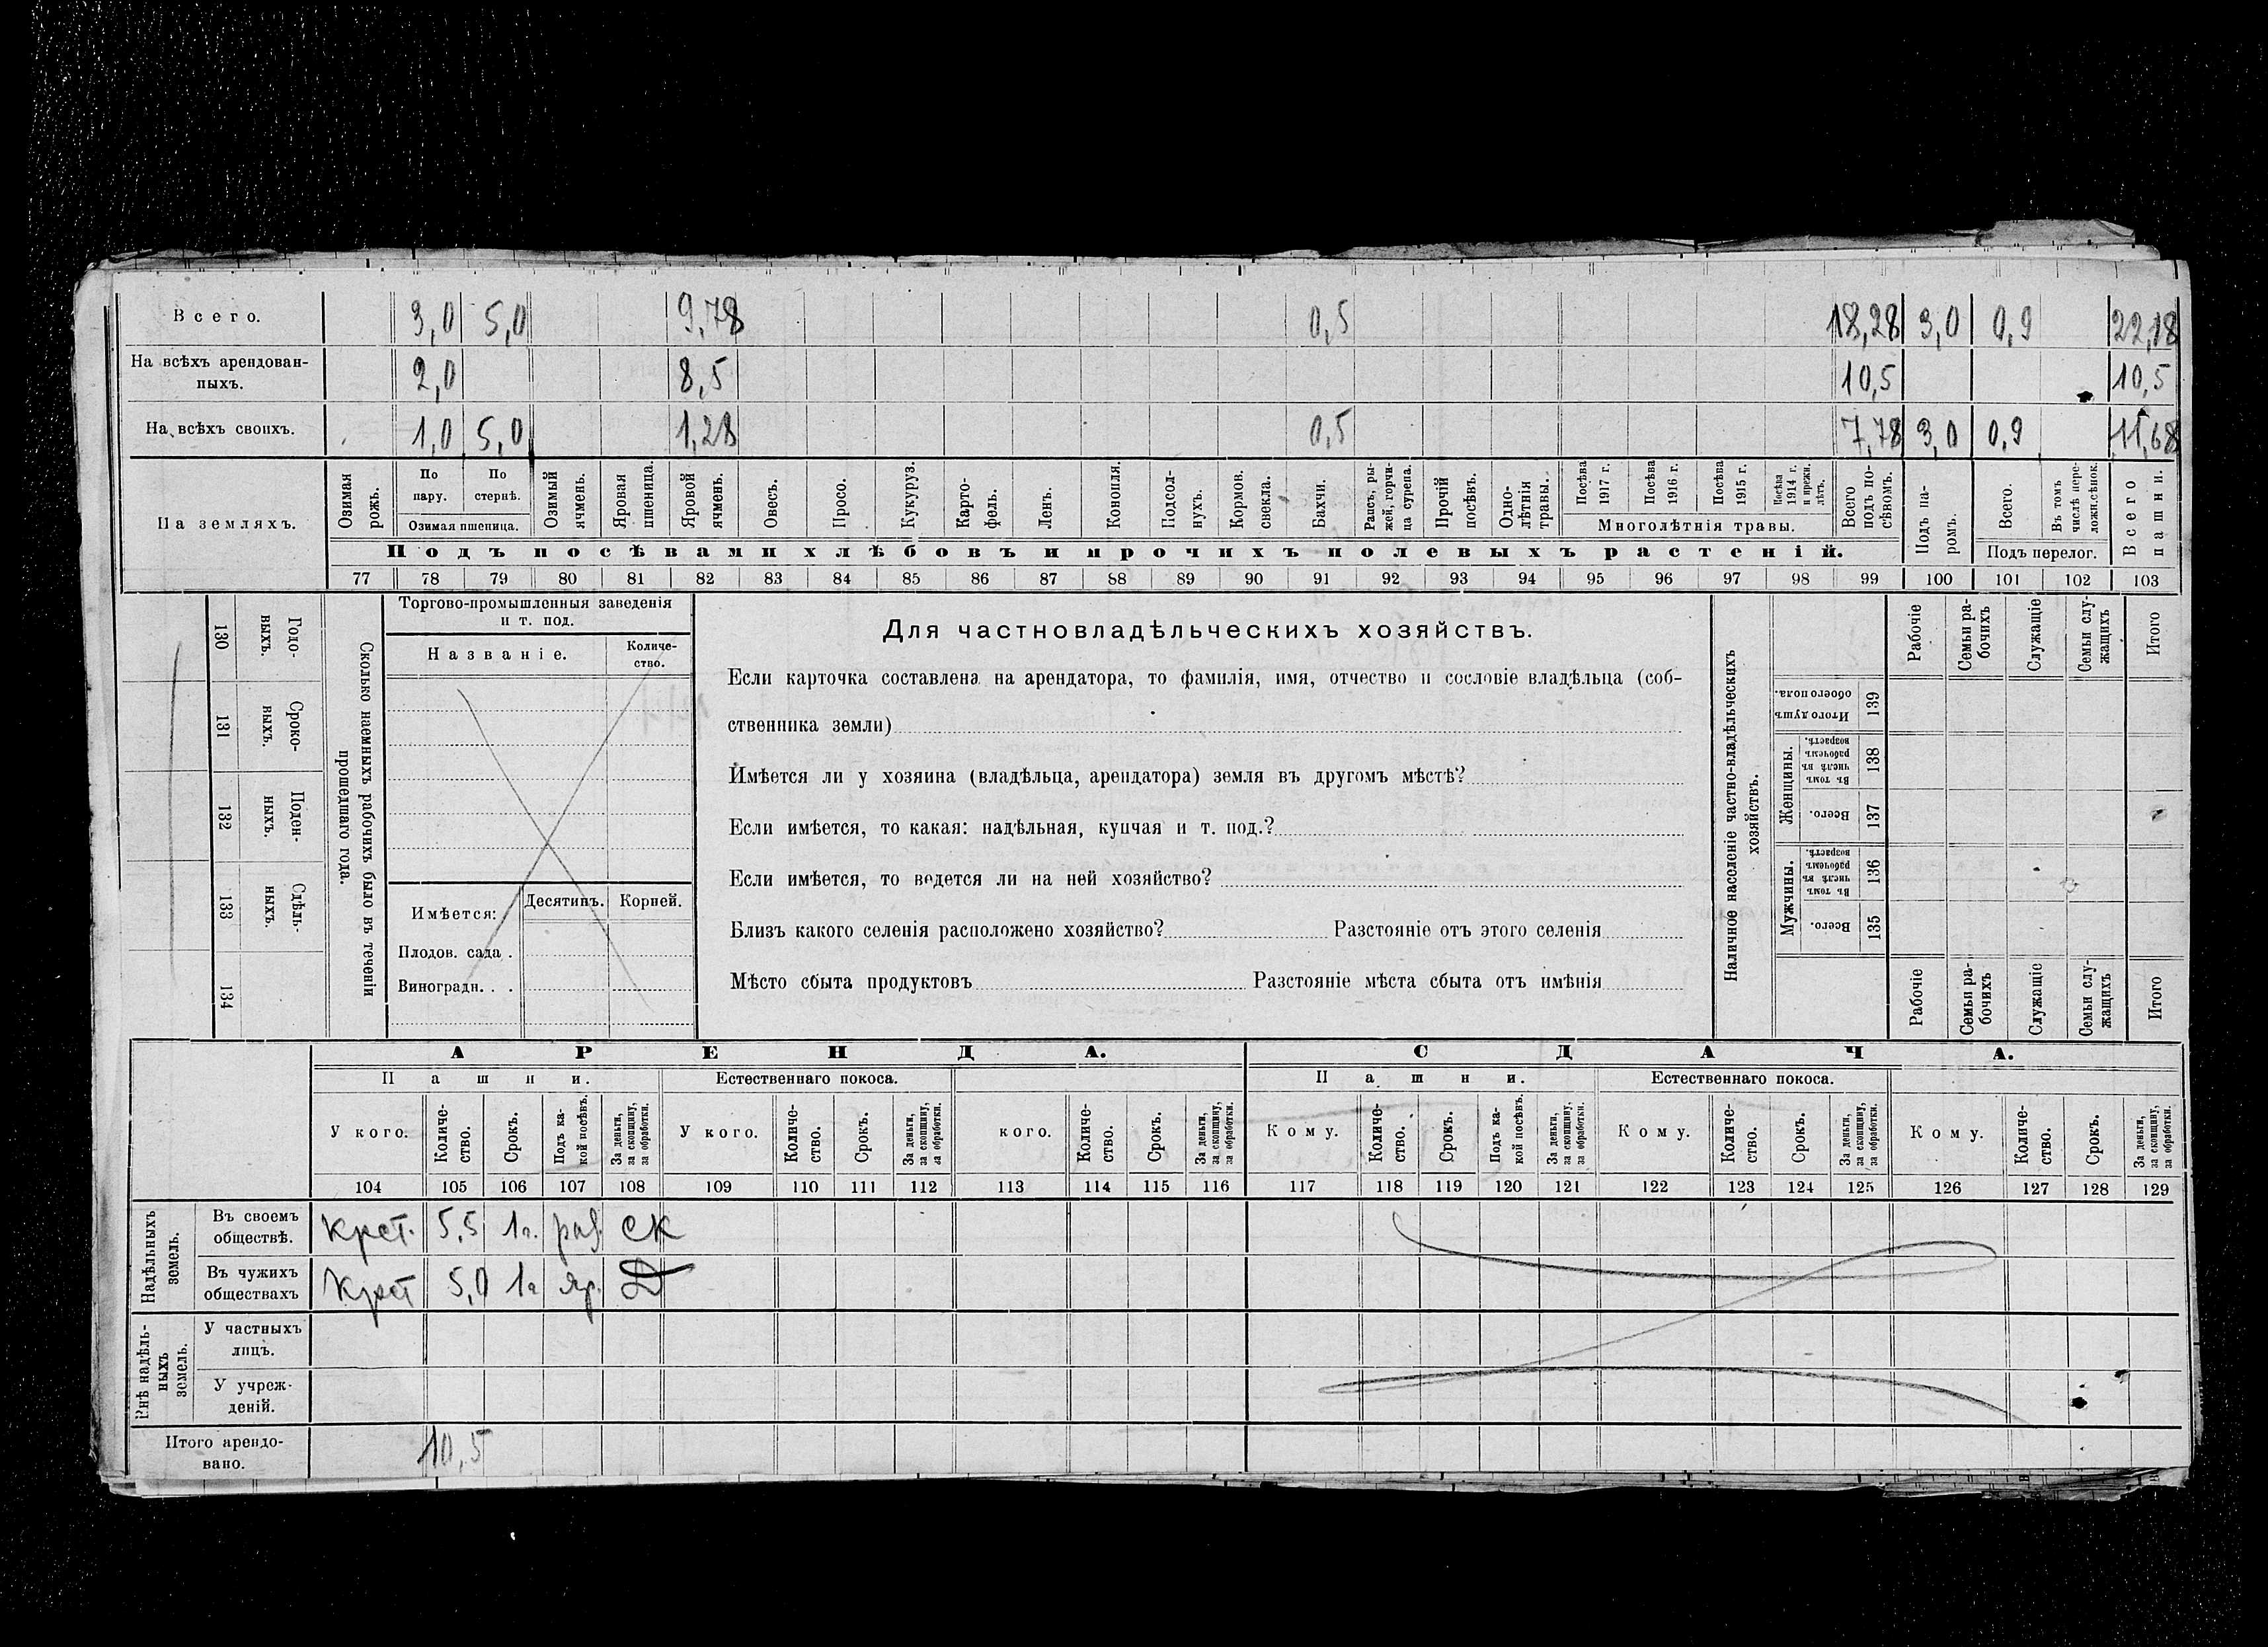 Всего. 3,0 5,0 9,78 0,5 18,28 3,0 0,9 22,18
На всѣхъ арендован-
ныхъ. 2,0 8,5 10,5 10,5
На всѣхъ своихъ. 1,0 5,0 1,28 0,5 7,78 3,0 0,9 11,68
На земляхъ.
Озимая рожь.
По пару.
По стернѣ.
Озимая пшеница.
Озимый ячмень.
Яровая пшеница.
Яровой ячмень.
Овесъ.
Просо.
Кукуруз.
Карто-
фель.
Ленъ.
Конопля.
Подсол-
нухъ.
Кормов. свекла.
Бахчи.
Рапсъ, ры-
жей, горчи-
ца сурепа.
Прочій посѣвъ.
Одно-
лѣтнія
травы.
Посѣва 1917 г.
Посѣва 1916 г.
Посѣва 1915 г.
Посѣва 1914 г. и прежн. лѣтъ.
Многолѣтнія травы.
Всего подъ по-
сѣвомъ.
Подъ па-
ромъ.
Всего.
Въ томъ числѣ пере-
ложн. сѣнок.
Подъ перелог.
Всего пашни.
Подъ посѣвами хлѣбовъ и прочихъ полевыхъ растеній.
77 78 79 80 81 82 83 84 85 86 87 88 89 90 91 92 93 94 95 96 97 98 99 100 101 102 103
130 Годо-
выхъ.
131 Сроко-
выхъ.
132 Поден-
ныхъ.
133 Сдѣль-
ныхъ.
134
Сколько наемныхъ рабочихъ было въ теченіи
прошедшаго года.
Торгово-промышленныя заведенія
и т. под.
Названіе. Количе-
ство.
Имѣется: Десятинъ. Корней.
Плодов. сада .
Виноградн. . .
Для частновладѣльческихъ хозяйствъ.
Если карточка составлена на арендатора, то фамилія, имя, отчество и сословіе владѣльца (соб-
ственника земли)
Имѣется ли у хозяина (владѣльца, арендатора) земля въ другомъ мѣстѣ?
Если имѣется, то какая: надѣльная, купчая и т. под.?
Если имѣется, то ведется ли на ней хозяйство?
Близъ какого селенія расположено хозяйство? Разстояніе отъ этого селенія
Мѣсто сбыта продуктовъ Разстояніе мѣста сбыта отъ имѣнія
Наличное населеніе частно-владѣльческихъ
хозяйствъ.
Рабочіе
Семьи ра-
бочихъ
Служащіе
Семьи слу-
жащихъ
Итого
Итого душ обоего пола. 139
Женщины.
Въ томъ числѣ въ рабочемъ возрастѣ. 138
Всего. 137
Мужчины.
Въ томъ числѣ въ рабочемъ возрастѣ. 136
Всего. 135
Рабочіе
Семьи ра-
бочихъ
Служащіе
Семьи слу-
жащихъ
Итого
АРЕНДА. СДАЧА.
Пашни. Естественнаго покоса. Пашни. Естественнаго покоса.
У кого. Количе-
ство. Срокъ. Подъ ка-
кой посѣвъ. За деньги, за скопщину, за обработки.
У кого. Количе-
ство. Срокъ. За деньги, за скопщину, за обработки.
кого. Количе-
ство. Срокъ. За деньги, за скопщину, за обработки.
Кому. Количе-
ство. Срокъ. Подъ ка-
кой посѣвъ. За деньги, за скопщину, за обработки.
Кому. Количе-
ство. Срокъ. За деньги, за скопщину, за обработки.
Кому. Количе-
ство. Срокъ. За деньги, за скопщину, за обработки.
104 105 106 107 108 109 110 111 112 113 114 115 116 117 118 119 120 121 122 123 124 125 126 127 128 129
Надѣльныхъ
земель.
Въ своемъ
обществѣ. Крст. 5,5 1г. раз. ск
Въ чужихъ
обществахъ Крст 5,0 1г яр. Д
Внѣ надѣль-
ныхъ
земель.
У частныхъ
лицъ.
У учреж-
деній.
Итого арендо-
вано. 10,5